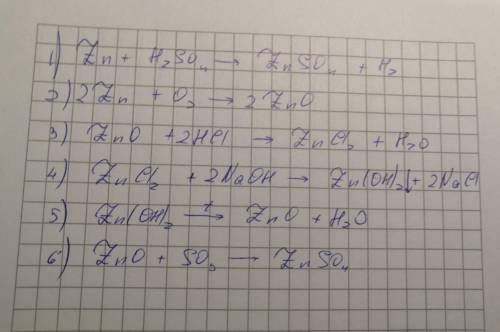 1) Zn + H₂SO₄ → ZnSO₄ + H₂
2) 2Zn + O₂ → 2ZnO
3) ZnO + 2HCl → ZnCl₂ + H₂O
4) ZnCl₂ + 2NaOH → Zn(OH)₂↓ + 2NaCl
5) Zn(OH)₂ →ᵗ ZnO + H₂O
6) ZnO + SO₃ → ZnSO₄